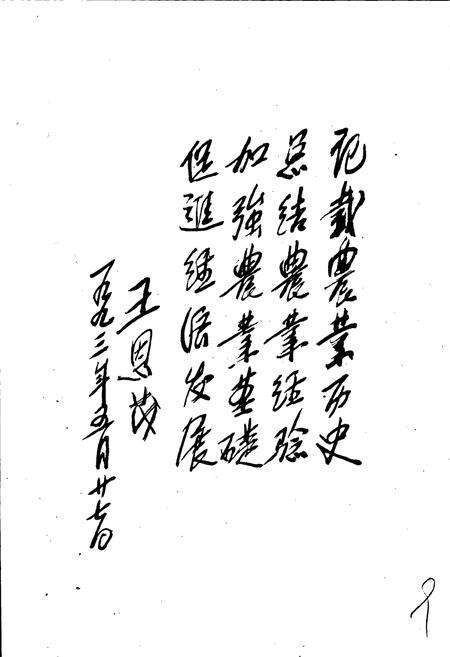 记载農業历史
总结農業经验
加強農業基礎
促進经济发展
王恩茂
一九九三年五月廿七日